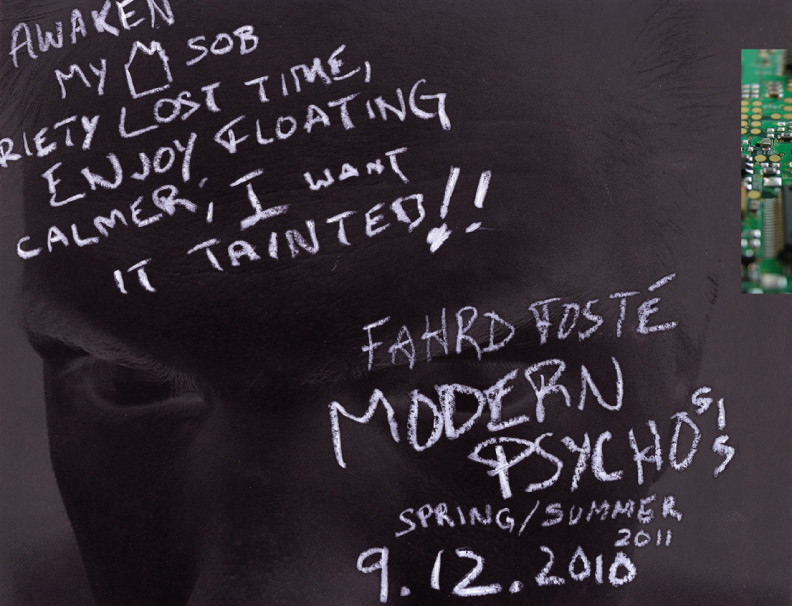 AWAKEN
MY SOB
RIETY LOST TIME,
ENJOY FLOATING
CALMER, I WANT
IT TAINTED!!
FAHRD FOSTÉ
MODERN
PSYCHOSIS
SPRING/SUMMER
2011
9.12.2010